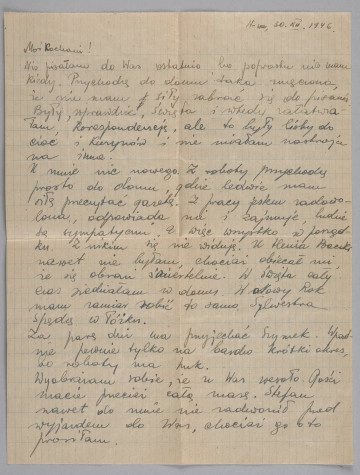 30.XII.1946.
Moi Kochani!
Nie pisałam do Was ostatnio bo poprostu nie mam
kiedy. Przychodzę do domu taka zmęczona
że nie mam siły zabrać się do pisania.
Były, wprawdzie, święta i wtedy załatwia-
łam korespondencję, ale to były listy do
cioć i kuzynów i nie miałam nastroju
na inne.
U mnie nic nowego. Z roboty przychodzę
prosto do domu, gdzie ledwie mam
siłę przeczytać gazetę. Z pracy jestem zadowo-
lona, odpowiada mi i zajmuje, ludzie
są sympatyczni. Więc wszystko w porząd-
ku. Z nikim się nie widuję. U Henia
nawet nie byłam, chociaż obiecał mi
że się obrazi śmiertelnie. W święta cały
czas siedziałam w domu. W Nowy Rok
mam zamiar robić to samo, Sylwestra
spędzę w łóżku.
Za parę dni ma przyjechać Szymek. Wpad-
nie pewnie tylko na bardzo krótki okres,
bo roboty ma huk.
Wyobrażam sobie, że u Was wesoło. Gości
macie przecież całą masę. Stefan
nawet do mnie nie zadzwonił przed
wyjazdem do Was, chociaż go o to
prosiłam.